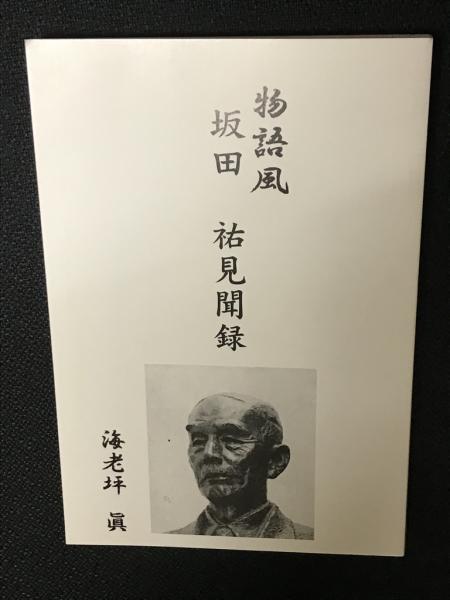 物語風
坂田 祐見聞録
海老坪 眞